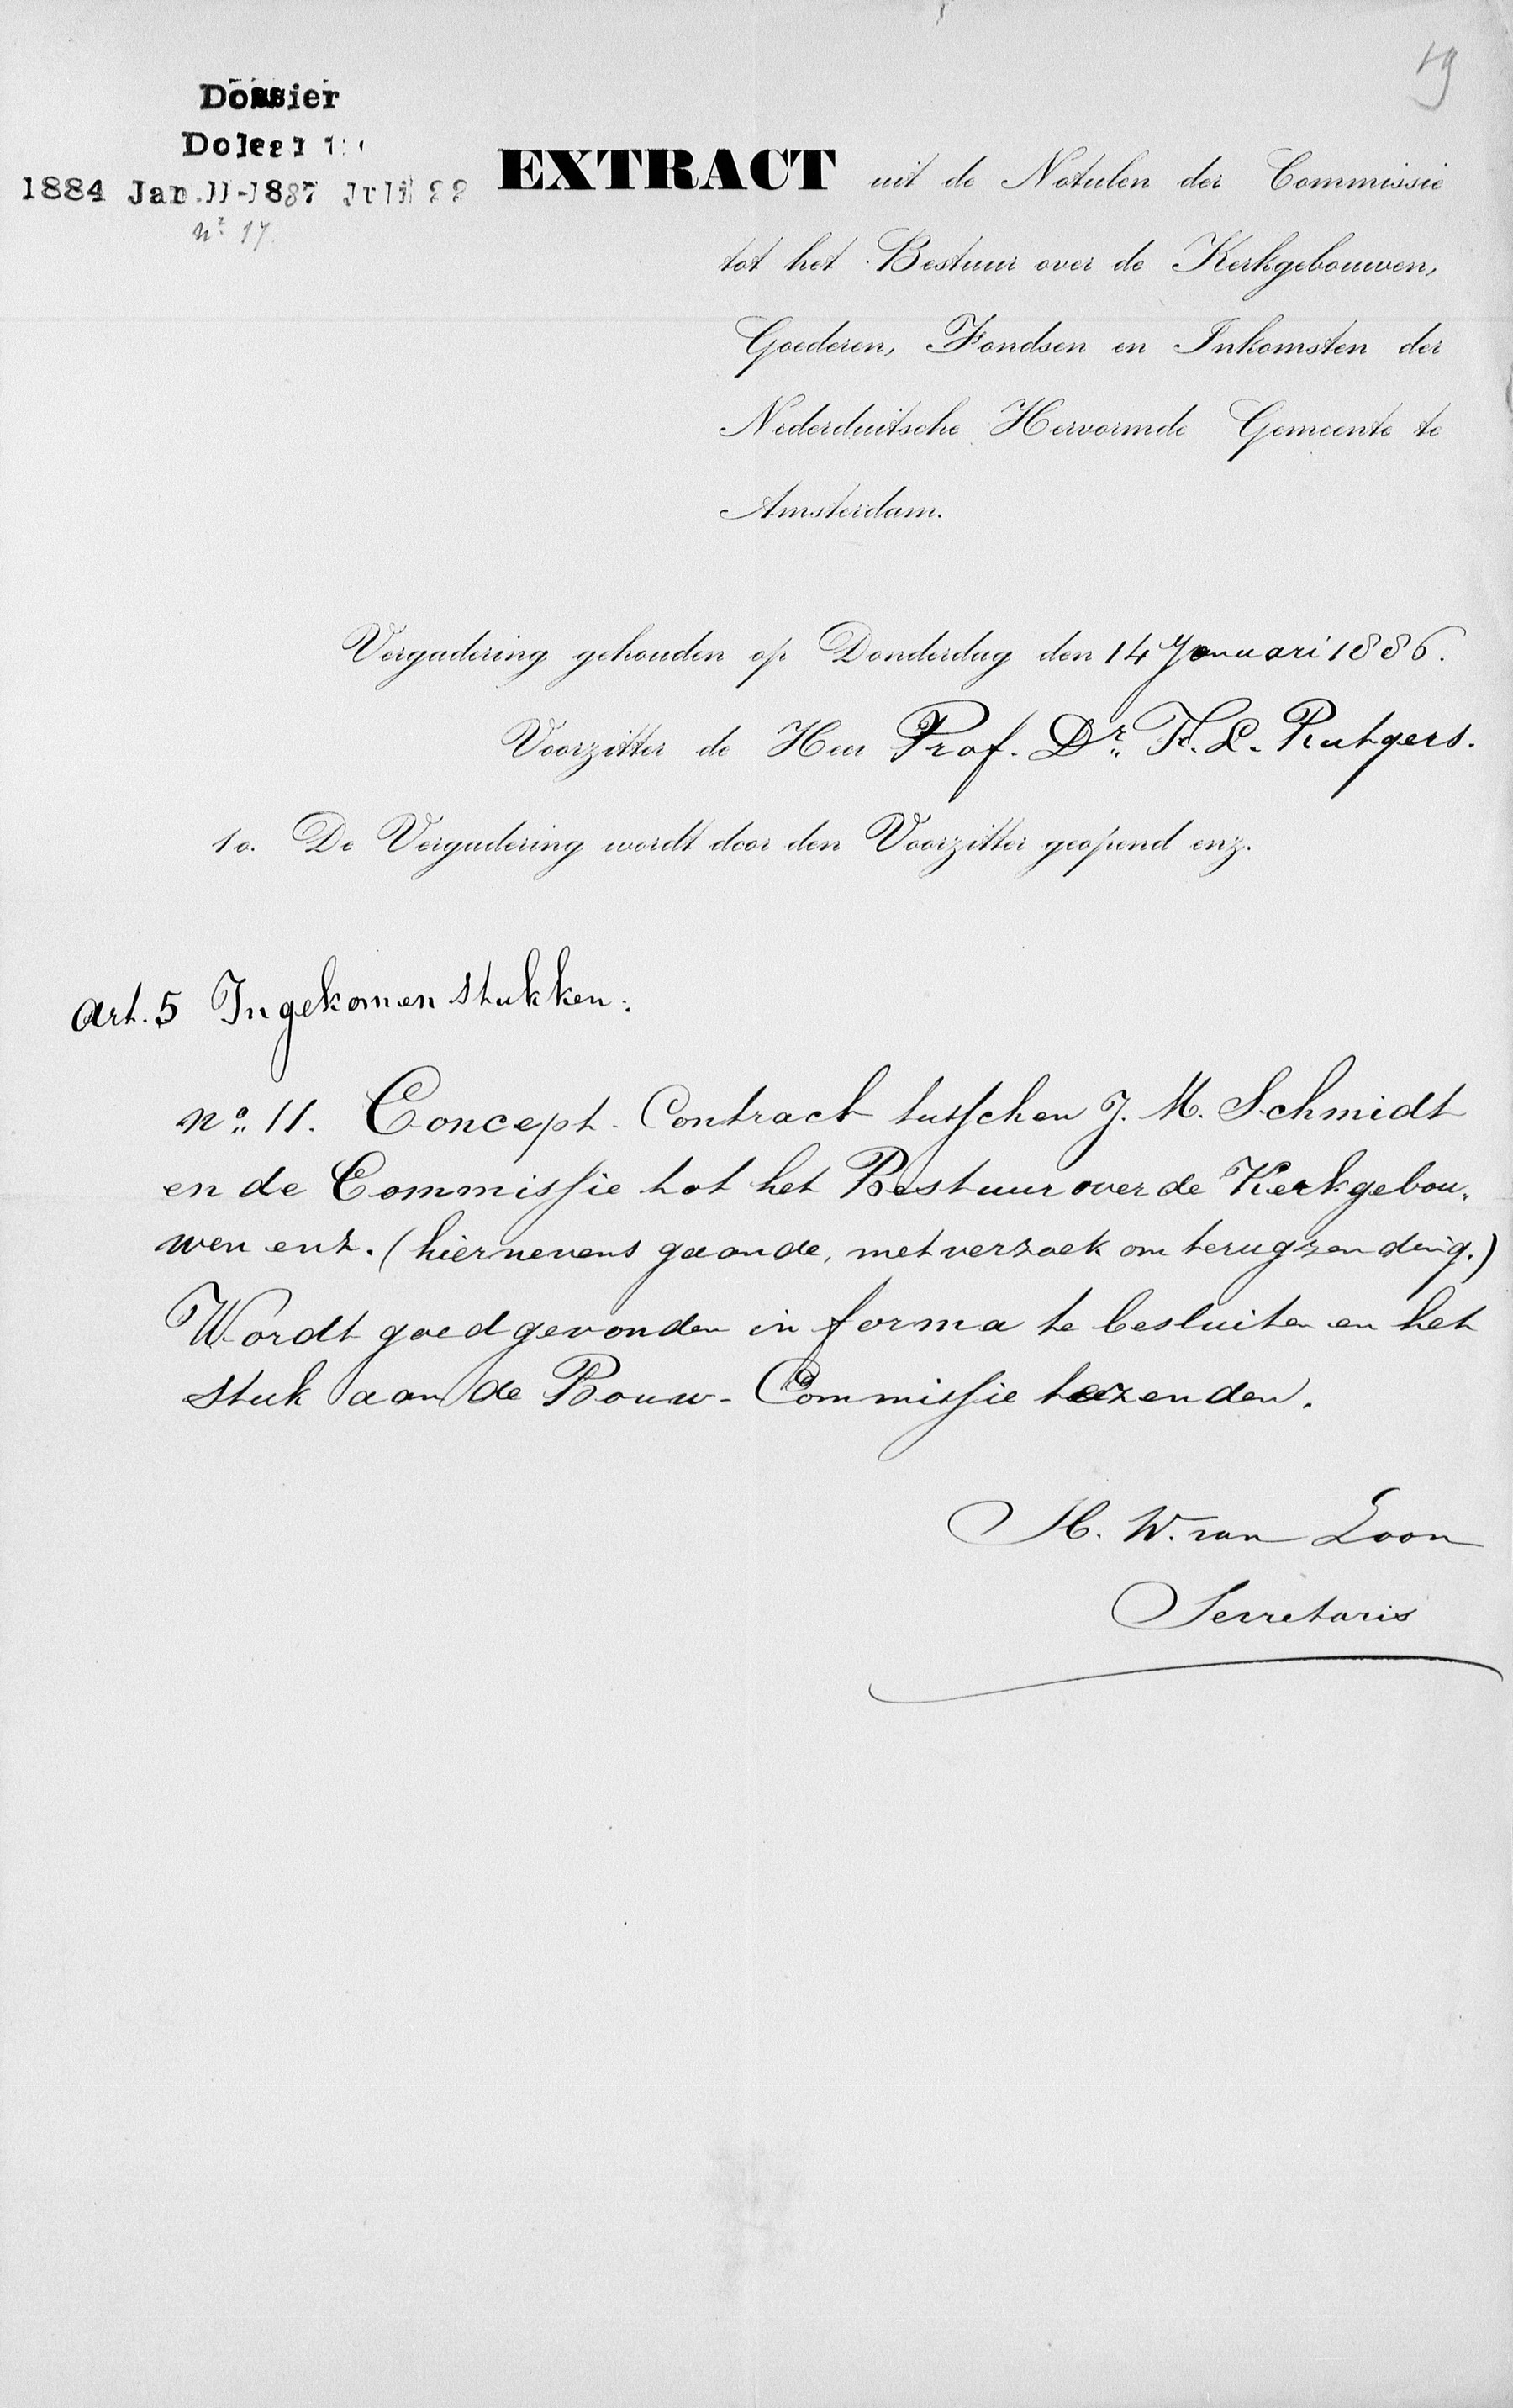 19
Dossier
1884 Jan. 11-1887 Juli 22
No. 17
EXTRACT uit de Notulen der Commissie
tot het Bestuur over de Kerkgebouwen,
Goederen, Fondsen en Inkomsten der
Nederduitsche Hervormde Gemeente te
Amsterdam.
Vergadering gehouden op Donderdag den 14 Januari 1886.
Voorzitter de Heer Prof. Dr. F. L. Rutgers.
1o. De Vergadering wordt door den Voorzitter geopend enz.
Art. 5 Ingekomen stukken:
no. 11. Concept-Contract tusschen J. M. Schmidt
en de Commissie tot het Bestuur over de Kerkgebou-
wen enz. (hiernevens gaande, met verzoek om terugzending.)
Wordt goedgevonden in forma te besluiten en het
stuk aan de Bouw-Commissie te zenden.
H. W. van Loon
Secretaris